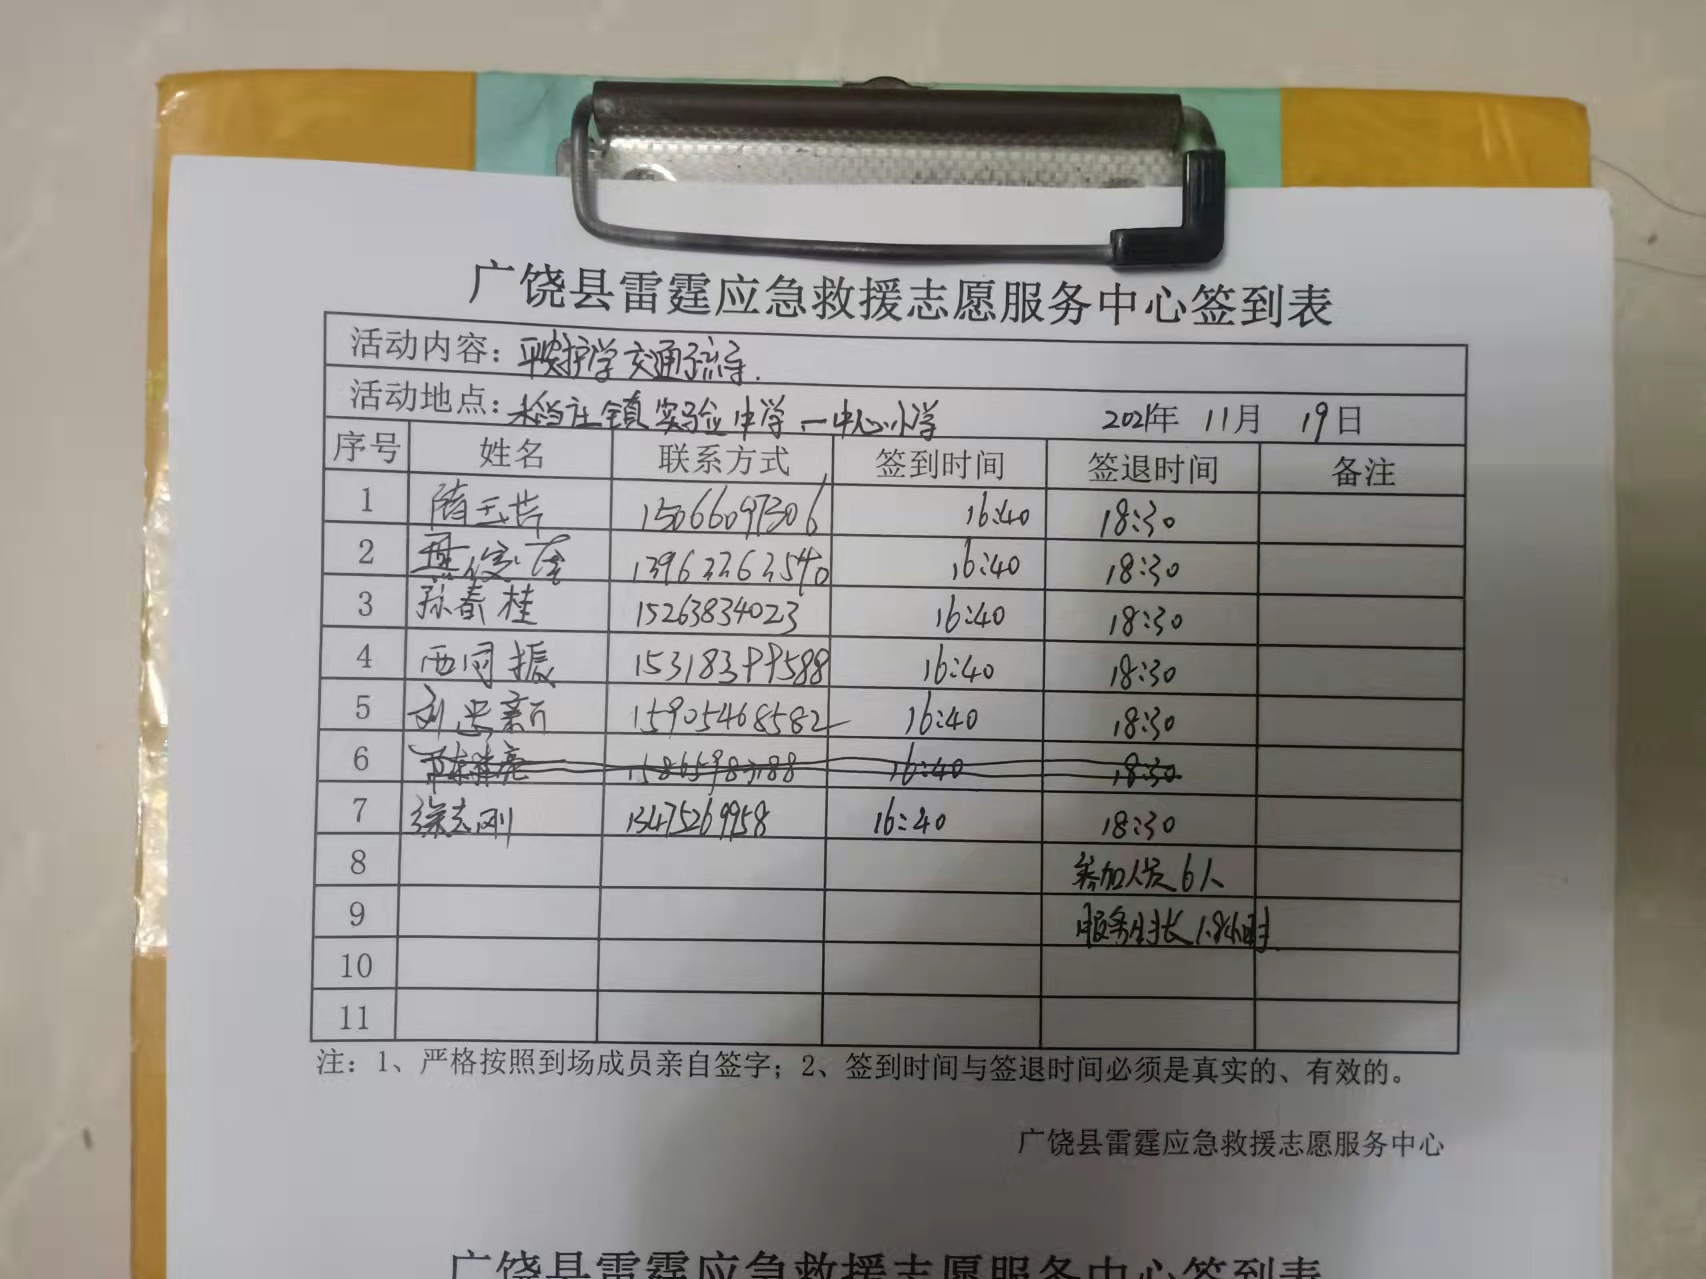 广饶县雷霆应急救援志愿服务中心签到表
活动内容：平安护学 交通疏导.
活动地点：稻庄镇实验中学 - 中心小学 2021年 11月 19日
序号 姓名 联系方式 签到时间 签退时间 备注
1 隋玉 15066097306 16:40 18:30
2 13963262540 16:40 18:30
3 孙春桂 15263834023 16:40 18:30
4 西同振 15318399588 16:40 18:30
5 刘 新 15905468582 16:40 18:30
6 16:40 18:30
7 徐志刚 13475269958 16:40 18:30
8 参加人员6人
9 服务时长1.8小时
10
11
注：1、严格按照到场成员亲自签字；2、签到时间与签退时间必须是真实的、有效的。
广饶县雷霆应急救援志愿服务中心
广饶县雷霆应急救援志愿服务中心签到表